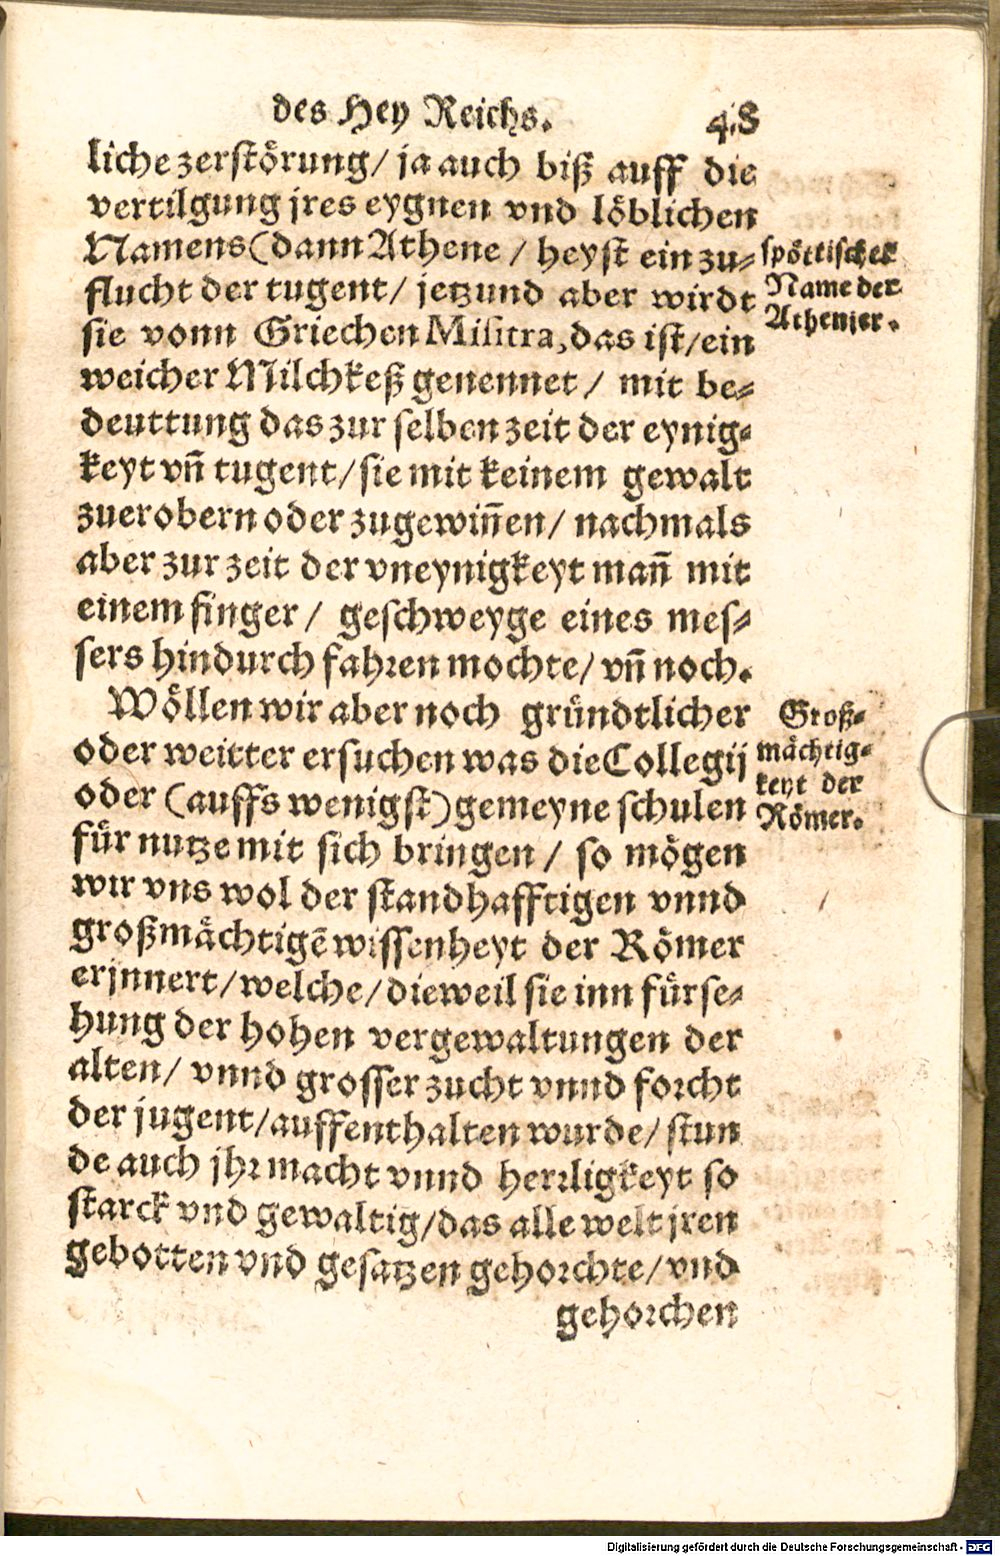 des Hey Reichs. 48
liche zerstörung/ ja auch biß auff die
vertilgung jres eygnen vnd löblichen
Namens (dann Athene / heyst ein zu-
flucht der tugent/ jetzund aber wirdt
sie vonn Griechen Misitra, das ist/ein
weicher Milchkeß genennet / mit be-
deuttung das zur selben zeit der eynig-
keyt vñ tugent/sie mit keinem gewalt
zuerobern oder zugewiñen/ nachmals
aber zur zeit der vneynigkeyt mañ mit
einem finger/ geschweyge eines mes-
sers hindurch fahren mochte/ vñ noch.
spöttischer
Name der
Athenjer.
Wöllen wir aber noch gründtlicher
oder weitter ersuchen was die Collegij
oder (auffs wenigst) gemeyne schulen
für nutze mit sich bringen / so mögen
wir vns wol der standhafftigen vnnd
großmächtigẽ wissenheyt der Römer
erjnnert/welche/dieweil sie inn fürse-
hung der hohen vergewaltungen der
alten/ vnnd grosser zucht vnnd forcht
der jugent/auffenthalten wurde/ stun
de auch jhr macht vnnd herrligkeyt so
starck vnd gewaltig/das alle welt jren
gebotten vnd gesatzen gehorchte/ vnd
gehorchen
Groß-
mächtig-
keyt der
Römer.
Digitalisierung gefördert durch die Deutsche Forschungsgemeinschaft - DFG